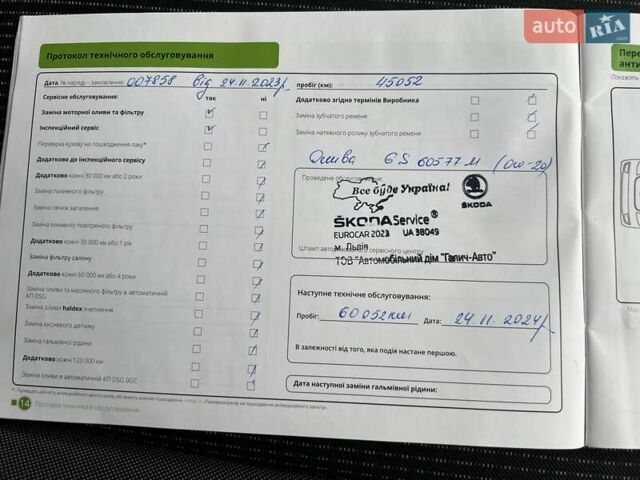 auto RIA .com
Протокол технічного обслуговування
Дата, № наряду – замовлення: 007858 від 24.11.2023р
Сервісне обслуговування: так ні
Заміна моторної оливи та фільтру
Інспекційний сервіс
Перевірка кузову на пошкодження лаку*
Додатково до інспекційного сервісу
Додатково кожні 30 000 км або 2 роки
Заміна паливного фільтру
Заміна свічок запалення
Заміна елементу повітряного фільтру
Додатково кожні 30.000 км або 1 рік
Заміна фільтру салону
Додатково кожні 60 000 км або 4 роки
Заміна оливи та масляного фільтру в автоматичній КП DSG
Заміна оливи haldex зчеплення
Заміна кисневого датчику
Заміна гальмівної рідини
Додатково кожні 120 000 км
Заміна оливи в автоматичній КП DSG 0GC
14 Протокол технічного обслуговування
пробіг (км): 45052
Додатково згідно термінів Виробника
Заміна зубчатого ременя
Заміна натяжного ролику зубчатого ременя
Олива GS 60577 М (0w-20)
Проведене обслуговування
Все буде Україна!
ŠKODA
ŠKODA Service®
EUROCAR 2023 UA 38049
м. Львів
Штамп авторизованого сервісного центру
ТОВ "Автомобільний дім "Галич-Авто"
Наступне технічне обслуговування:
Пробіг: 60052км Дата: 24.11.2024р
В залежності від того, яка подія настане першою.
Дата наступної заміни гальмівної рідини:
Пере
анти